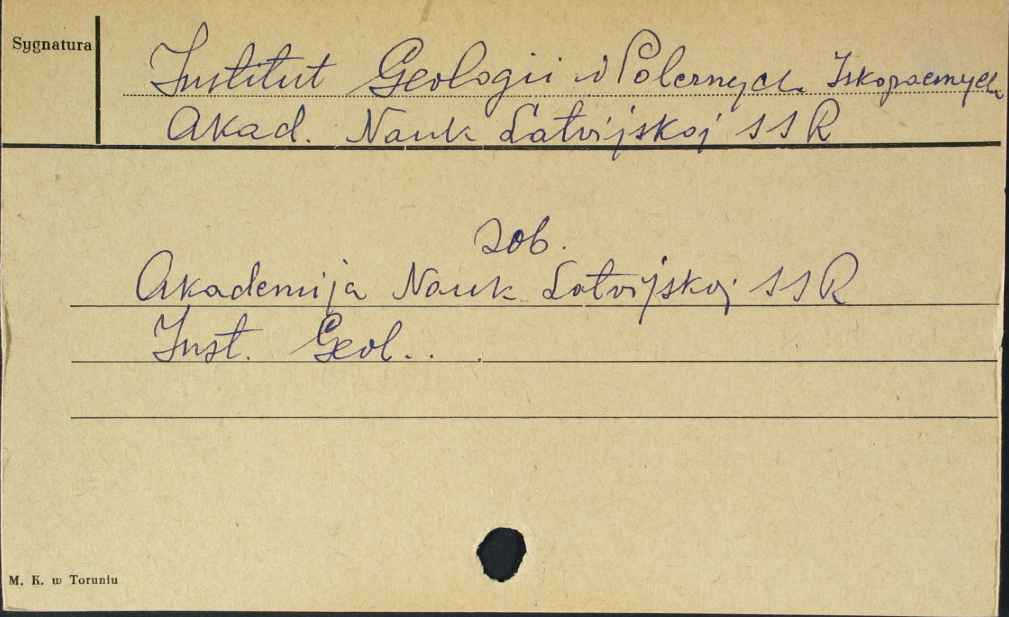 Sygnatura
Institut Geologii i Polernych Iskopaemych
Akad. Nauk Latvijskoj SSR
zob.
Akademija Nauk Latvijskoj SSR
Inst. Geol...
M. K. w Toruniu